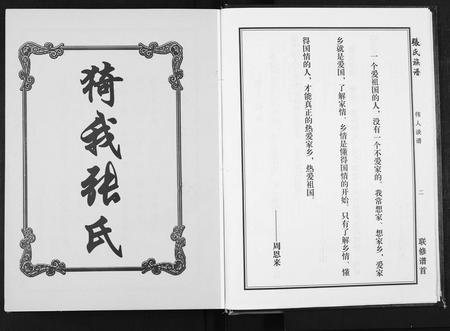 猗我张氏
張氏族谱
伟人谈谱
二
联修谱首
一个爱祖国的人，没有一个不爱家的。我常想家、想家乡，爱家
乡就是爱国，了解家情、乡情是懂得国情的开始。只有了解乡情、懂
得国情的人，才能真正的热爱家乡，热爱祖国。
——周恩来